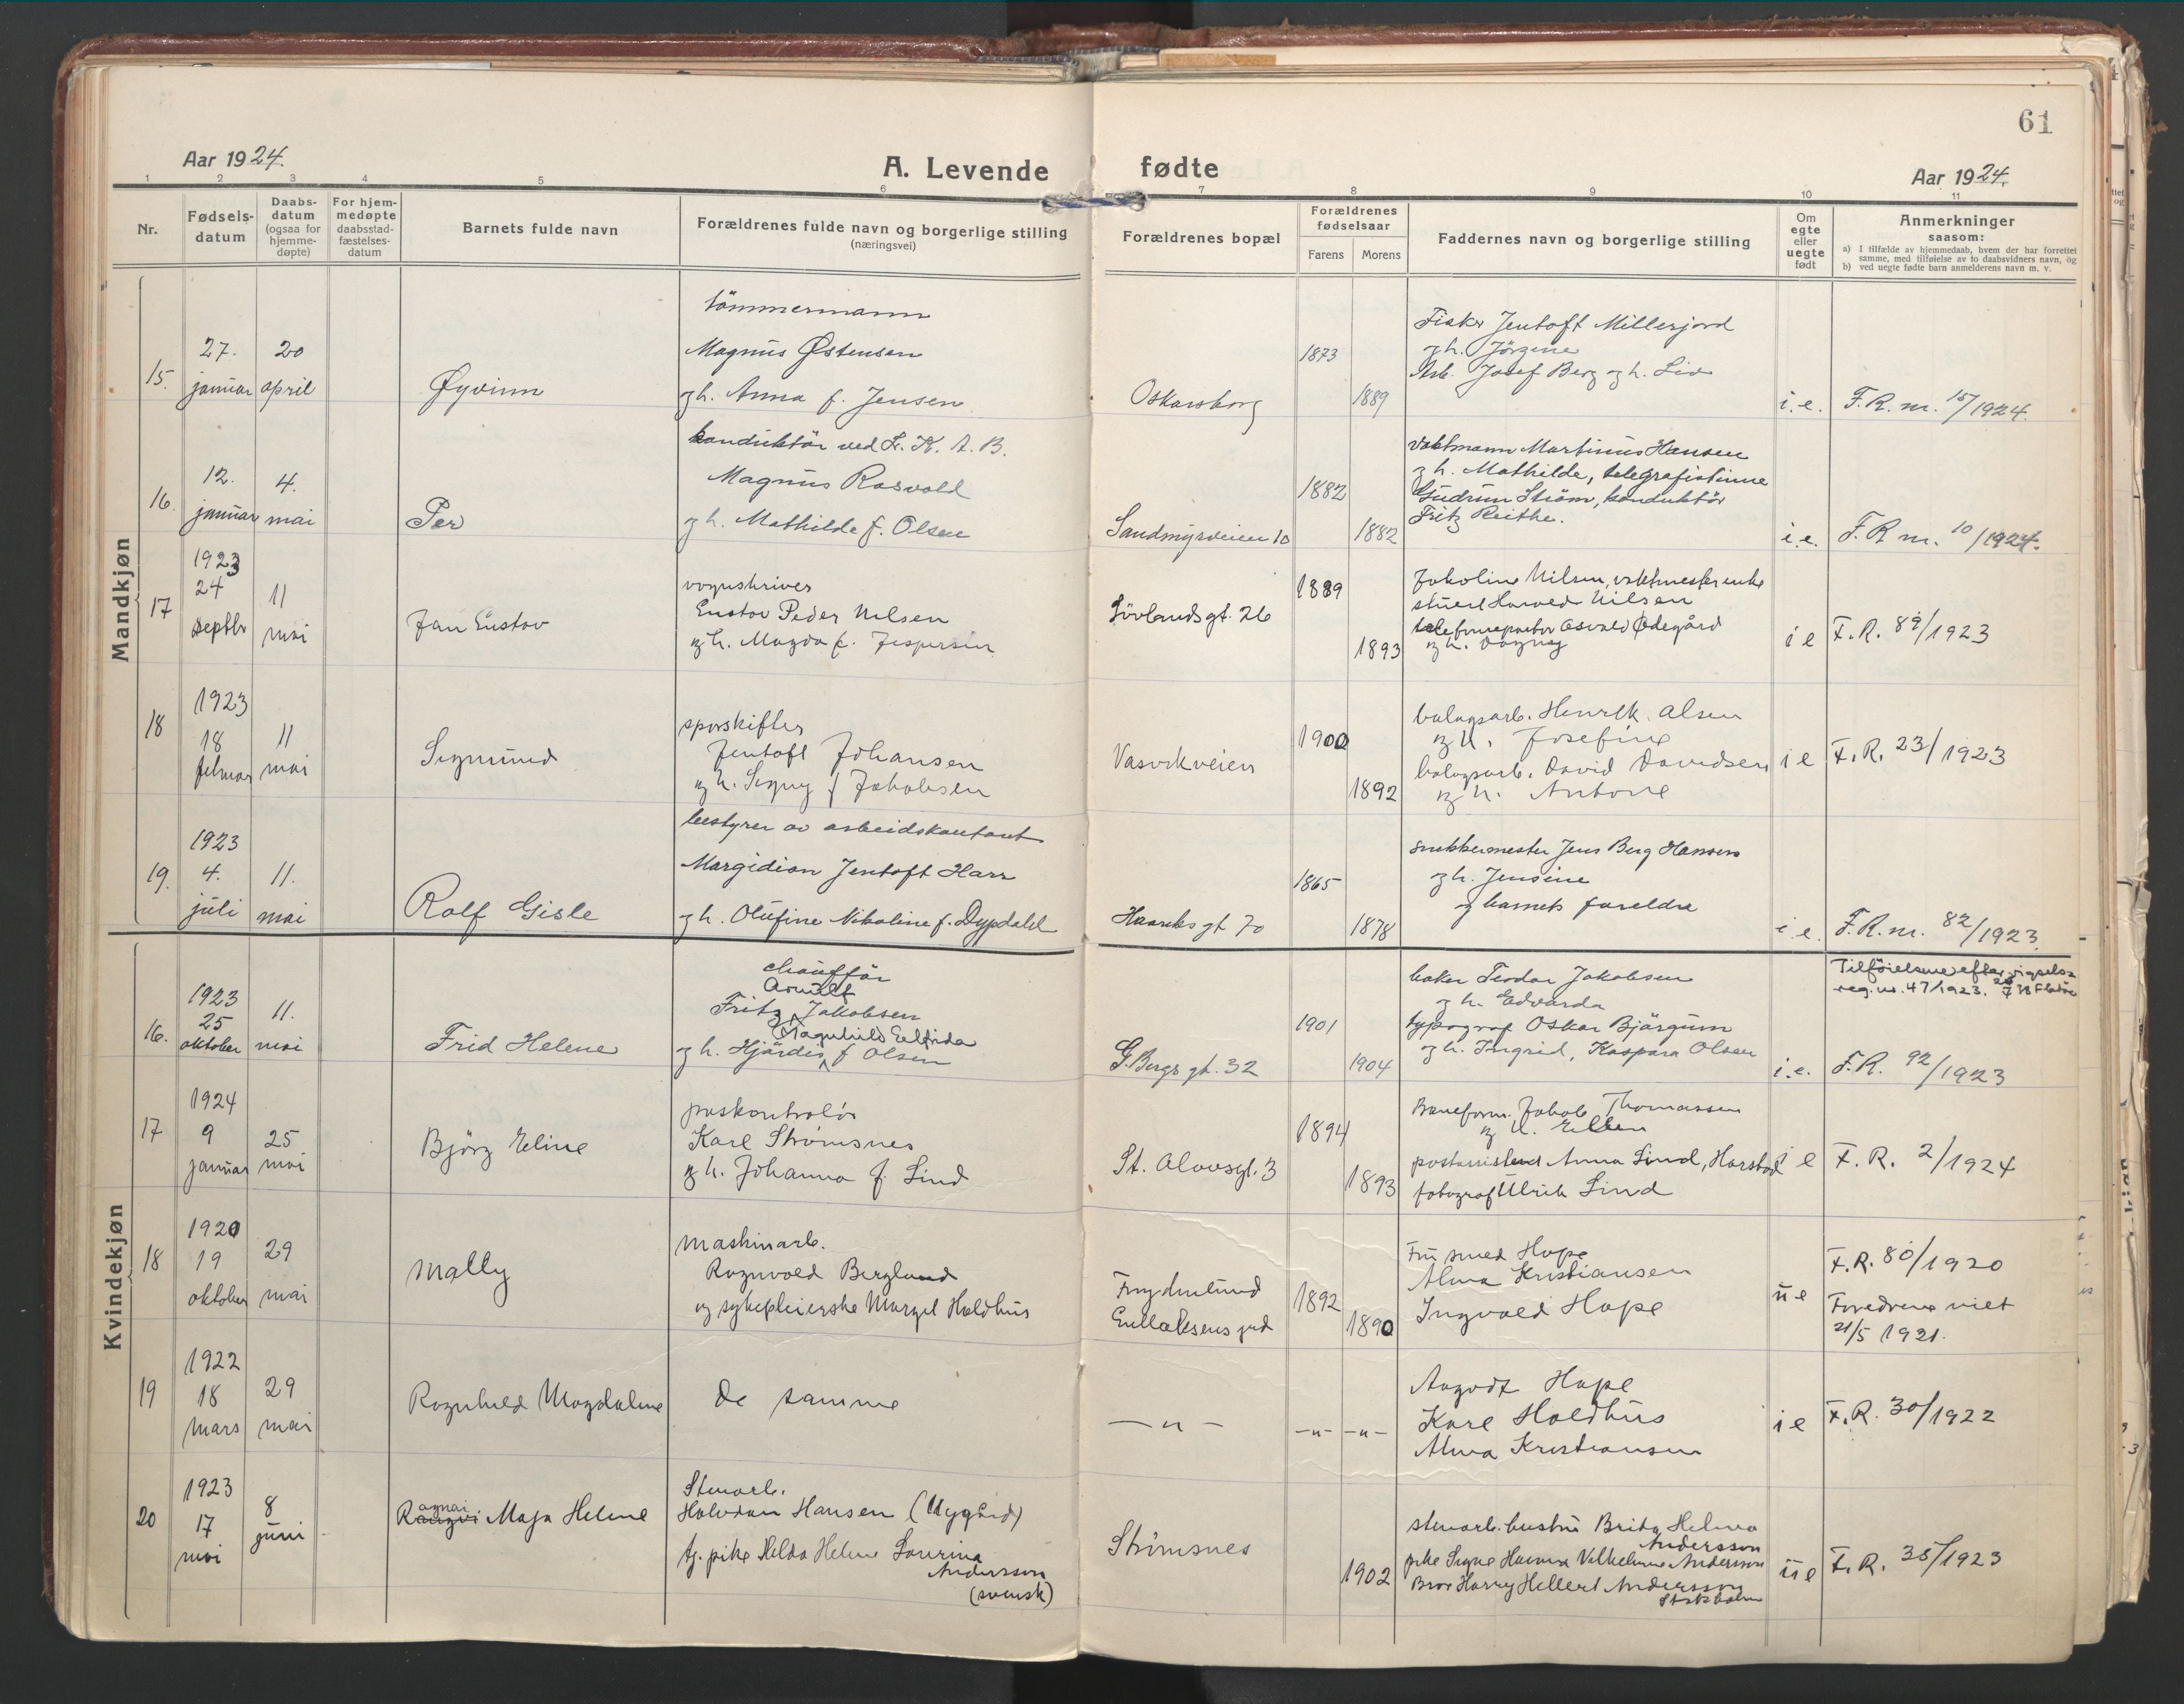 61
Aar 1924.
A. Levende fødte
Aar 1924.
1 2 3 4 5 6 7 8 9 10 11
Nr.
Fødsels-
datum
Daabs-
datum
(ogsaa for
hjemme-
døpte)
For hjem-
medøpte
daabsstad-
fæstelses-
datum
Barnets fulde navn
Forældrenes fulde navn og borgerlige stilling
(næringsvei)
Forældrenes bopæl
Forældrenes
fødselsaar
Farens Morens
Faddernes navn og borgerlige stilling
Om
egte
eller
uegte
født
Anmerkninger
saasom:
a) I tilfælde av hjemmedaab, hvem der har forrettet
samme, med tilføielse av to daabsvidners navn, og
b) ved uegte fødte barn anmelderens navn m. v.
Mandkjøn
15.
27.
januar
20
april
Øyvinn
tömmermann
Magnus Østensen
og h. Anna f. Jensen
Oskarsborg
1873
1889
Fisker Jentoft Millerjord
og h. Jörgine
Arb. Josef Berg og h. Liv
i.e.
F.R. nr. 15/1924.
16.
12.
januar
4.
mai
Per
konduktör ved L. K. A. B.
Magnus Rosvold
og h. Mathilde f. Olsen
Sandmyrveien 10
1882
1882
vaktmann Martinus Hansen
og h. Mathilde, telegrafistinne
Gudrun Ström, konduktör
Fritz Reithe.
i.e.
F.R nr. 10/1924.
17
1923
24
septbr
11
mai
Jan Gustav
vognskriver
Gustav Peder Nilsen
og h. Magda f. Jespersen
Lövlandsgt. 26
1889
1893
Jakoline Nilsen, vaktmesterenke
stuert Harald Nilsen
Osvald Ødegård
og h. Dagny
i e
F.R. 89/1923
18
1923
18
februar
11
mai
Sigmund
sporskifter
Jentoft Johansen
og h. Signy f Jakobsen
Vasvikveien
1900
1892
bolagsarb. Henrik Olsen
og h. Josefine
bolagsarb. David Davidsen
og h. Antone
i e
F.R. 23/1923
19.
1923
4.
juli
11.
mai
Rolf Gisle
bestyrer av arbeidskontoret
Margidion Jentoft Harr
og h. Olufine Nikoline f. Dypdahl
Haareks gt 70
1865
1878
snekkermester Jens Berg Hansen
og h. Jensine
og barnets foreldre
i.e.
F.R. nr. 82/1923.
Kvindekjøn
16.
1923
25
oktober
11.
mai
Frid Helene
chaufför
Arnulf
Fritz Jakobsen
Ragnhild Elfrida
og h. Hjördis f Olsen
G. Bergs gt. 32
1901
1904
baker Teodor Jakobsen
og h. Edvarda
typograf Oskar Bjärgum
og h. Ingrid, Kaspara Olsen
i.e.
Tilföielsene efter vigsels-
reg. nr. 47/1923.
F.R. 92/1923
17
1924
9
januar
25
mai
Björg Eline
paskontrolör
Karl Strömsnes
og h. Johanna f. Lind
St. Olavsgt. 3
1894
1893
Baneform. Jakob Thomassen
og h. Ellen
postassistent Anna Lind, Harstad
fotograf Ulrik Lind
i e
F.R. 2/1924
18
1920
19
oktober
29
mai
Mally
maskinarb.
Ragnvald Berglund
og sykepleierske Margit Holdhus
Frydenlund
1892
1890
Fru smed Hope
Alma Kristiansen
Ingvald Hope
u e
F.R. 80/1920
Foreldrene viet
21/5 1921.
19
1922
18
mars
29
mai
Ragnhild Magdalene
De samme
— " —
— " — — " —
Hope
Kare Holdhus
Alma Kristiansen
i e
F.R. 30/1922
20
1923
17
mai
8
juni
Ragnai Maja Helene
Stenarb.
Halvdan Hansen (Nygård)
tj. pike Hilda Helene Laurina
Andersson
(svensk)
Strömsnes
1902
stenarb. hustru Brita Helena
Andersson
pike Signe Hanna Vilhelmina Andersson
Bror Harry Hellert Andersson
Stockholm
u e
F.R. 35/1923